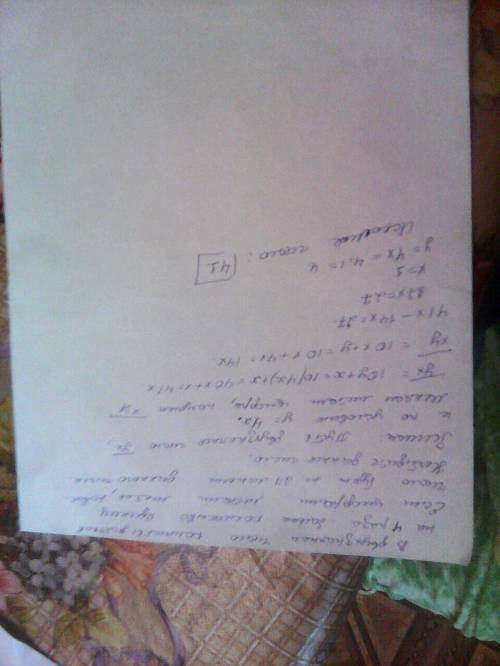 В двузначном числе количество десятков
на 4 раза более количества единиц
Если цифры местами, то
число будет на 27 меньше данного числа
Найдите данное число.
Решение: Пусть двузначное число yx,
и по условию y = 4x.
Меняем местами цифры, получим xy
yx = 10y+x = 10(4x)+x = 40x+x = 41x
xy = 10x+y = 10x+4x = 14x.
41x - 14x = 27.
27x = 27
x = 1
y = 4x = 4·1 = 4
Искомое число: 41